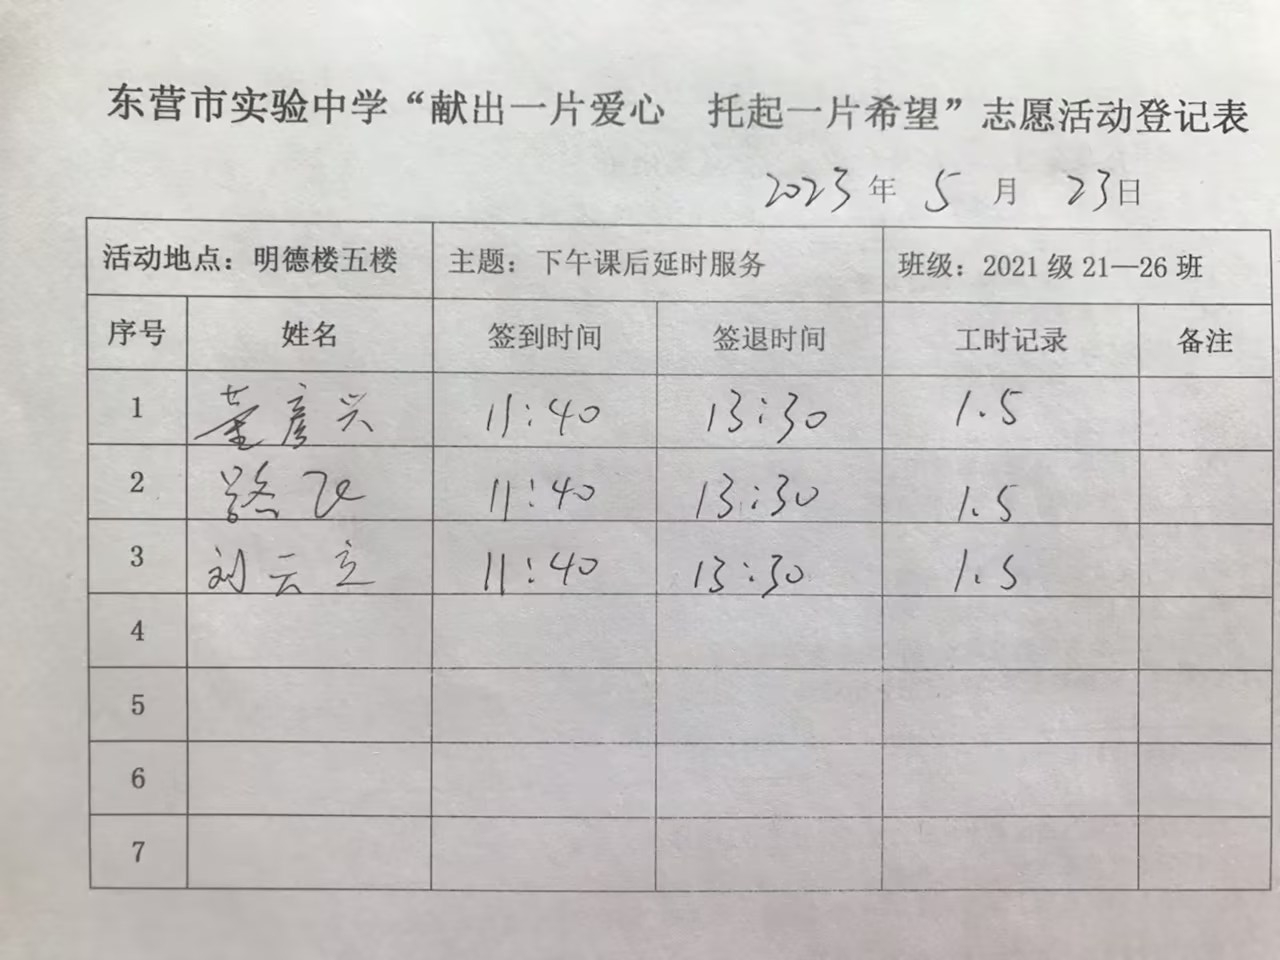 东营市实验中学“献出一片爱心 托起一片希望”志愿活动登记表
2023年 5月 23日
活动地点：明德楼五楼 主题：下午课后延时服务 班级：2021级21—26班
序号 姓名 签到时间 签退时间 工时记录 备注
1 董彦兴 11:40 13:30 1.5
2 路飞 11:40 13:30 1.5
3 刘云立 11:40 13:30 1.5
4
5
6
7